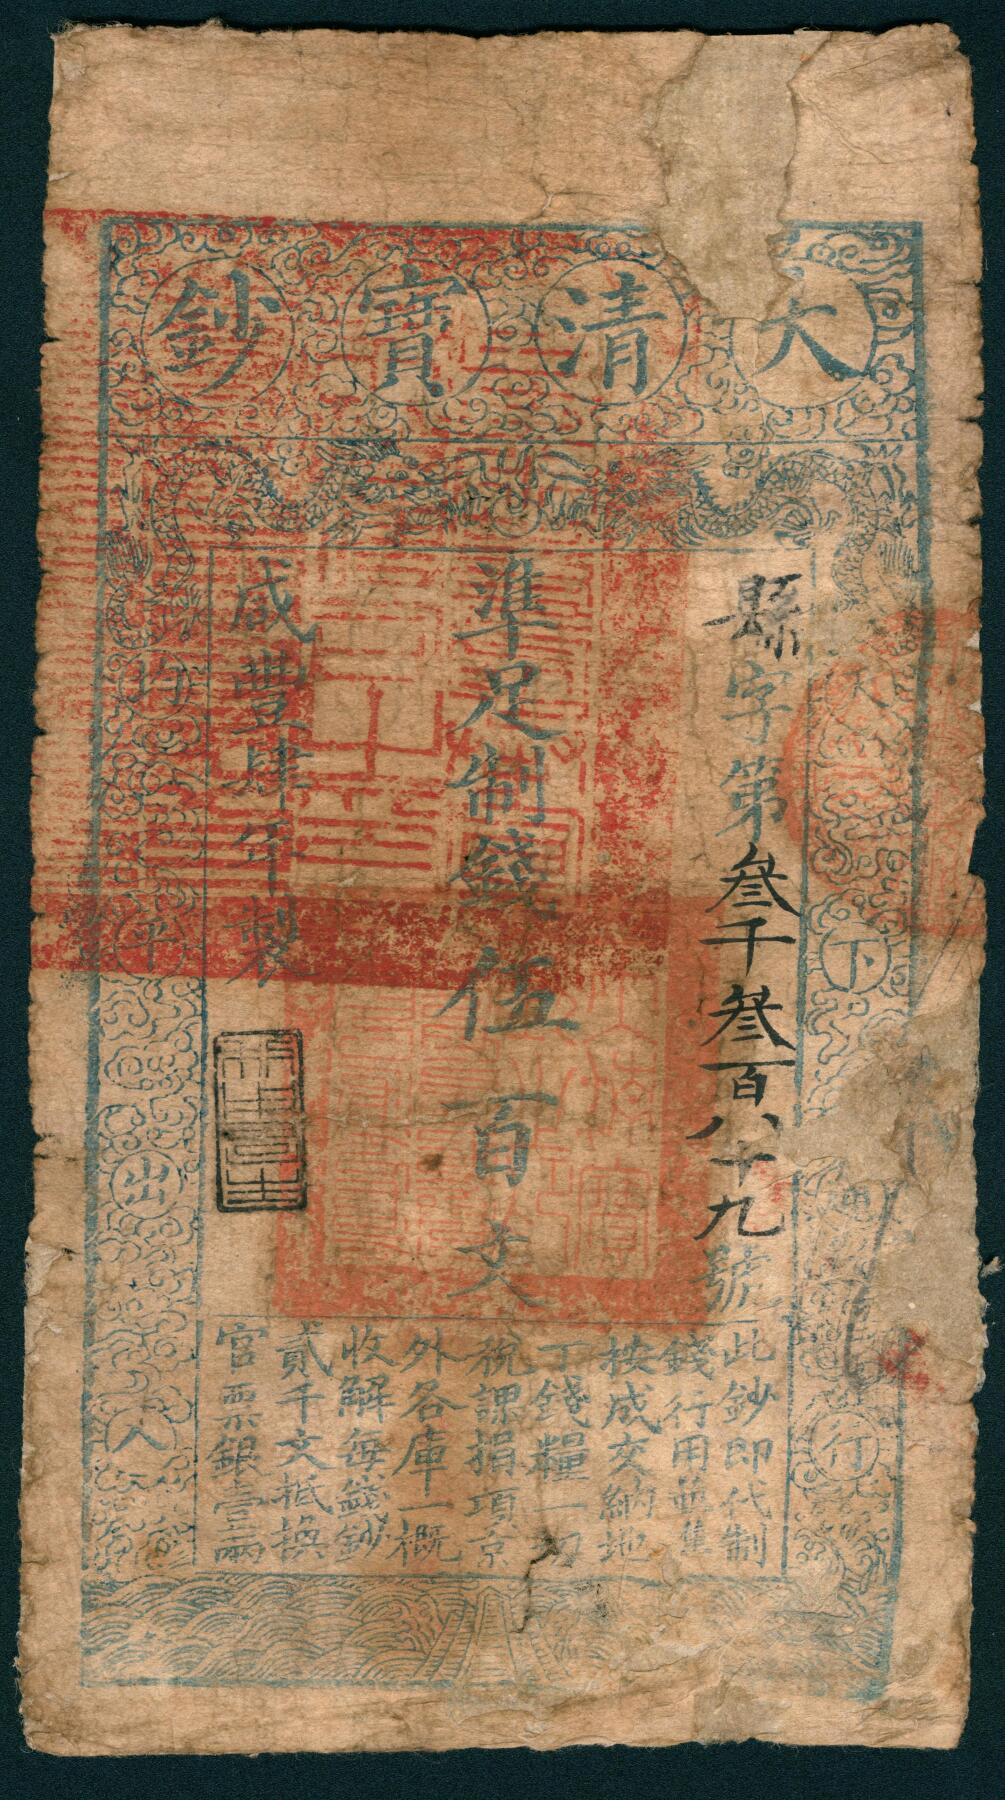 大清寶鈔
縣字第叄千叄百八十九號
準足制錢伍百文
咸豐肆年製
天下通行
均平出入
此鈔即代制
錢行用並準
按成交納地
丁錢糧一切
稅課捐項京
外各庫一概
收解每錢鈔
貳千文抵換
官票銀壹兩